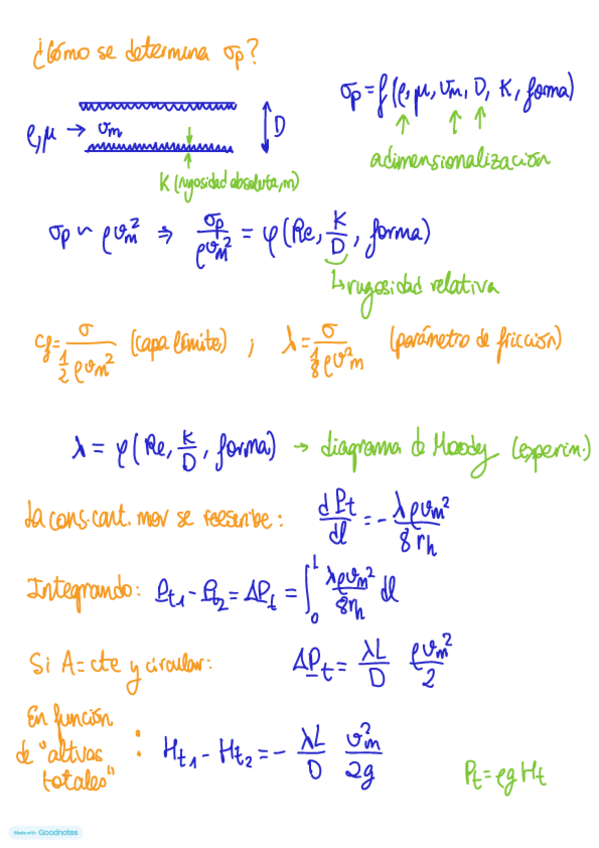 ¿Cómo se determina σp?
σp = f(ρ, μ, vm, D, K, forma)
ρ, μ → vm
D
adimensionalización
K (rugosidad absoluta, m)
σp ~ ρvm² ⇒ σp/ρvm² = φ(Re, K/D, forma)
↳ rugosidad relativa
cf = σ/(1/2 ρvm²) (capa límite) ; λ = σ/(1/8 ρv²m) (parámetro de fricción)
λ = φ(Re, K/D, forma) → diagrama de Moody (experim.)
La cons. cant. mov se reescribe: dPt/dl = - λρvm²/8rh
Integrando: Pt1 - Pt2 = ΔPt = ∫₀ᴸ λρvm²/8rh dl
Si A = cte y circular: ΔPt = λL/D ρvm²/2
En función
de "alturas
totales" : Ht1 - Ht2 = - λL/D vm²/2g
Pt = ρgHt
Made with Goodnotes